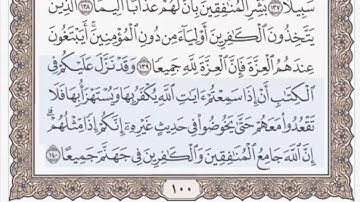 سَبِيلًا ١٣٧ بَشِّرِ ٱلْمُنَٰفِقِينَ بِأَنَّ لَهُمْ عَذَابًا أَلِيمًا ١٣٨ ٱلَّذِينَ
يَتَّخِذُونَ ٱلْكَٰفِرِينَ أَوْلِيَآءَ مِن دُونِ ٱلْمُؤْمِنِينَۚ أَيَبْتَغُونَ
عِندَهُمُ ٱلْعِزَّةَ فَإِنَّ ٱلْعِزَّةَ لِلَّهِ جَمِيعًا ١٣٩ وَقَدْ نَزَّلَ عَلَيْكُمْ فِى
ٱلْكِتَٰبِ أَنْ إِذَا سَمِعْتُمْ ءَايَٰتِ ٱللَّهِ يُكْفَرُ بِهَا وَيُسْتَهْزَأُ بِهَا فَلَا
تَقْعُدُوا۟ مَعَهُمْ حَتَّىٰ يَخُوضُوا۟ فِى حَدِيثٍ غَيْرِهِۦٓ إِنَّكُمْ إِذًا مِّثْلُهُمْۗ
إِنَّ ٱللَّهَ جَامِعُ ٱلْمُنَٰفِقِينَ وَٱلْكَٰفِرِينَ فِى جَهَنَّمَ جَمِيعًا ١٤٠
١٠٠